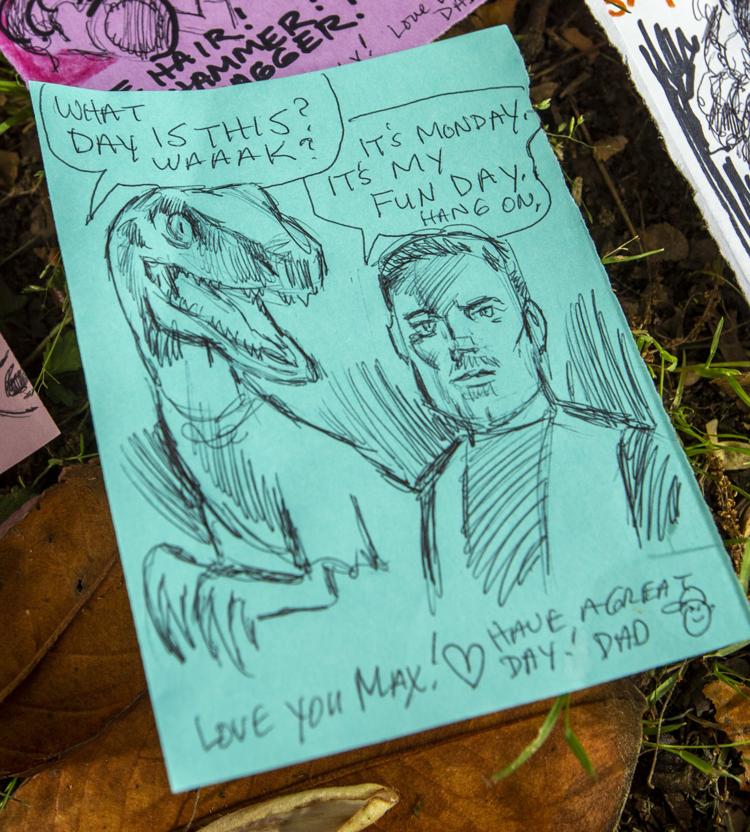 HAIR!
HAMMER!
Love
WHAT
DAY IS THIS?
WAAAK?
IT'S MONDAY.
IT'S MY
FUN DAY.
HANG ON.
LOVE YOU MAX! ♡ HAVE A GREAT
DAY! DAD